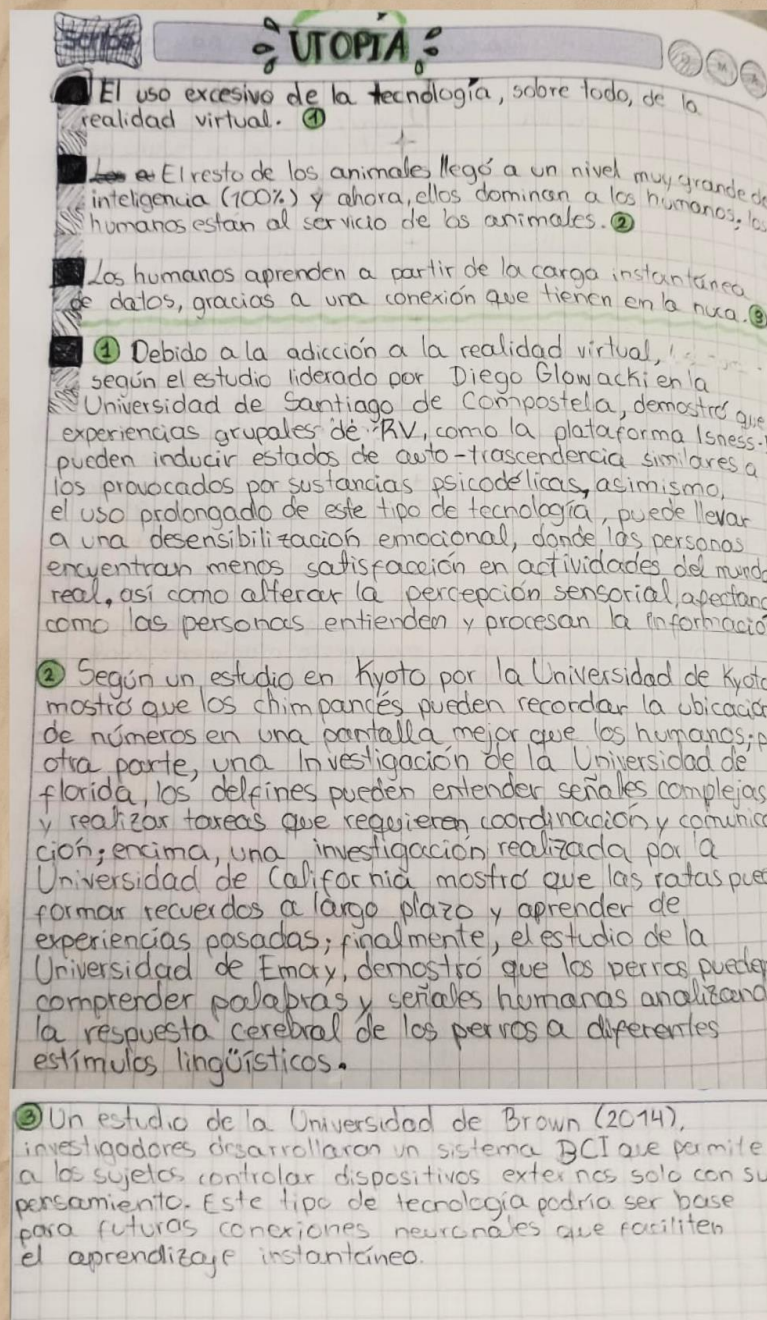 Scribe
UTOPIA
El uso excesivo de la tecnología, sobre todo, de la
realidad virtual. ①
El resto de los animales llegó a un nivel muy grande de
inteligencia (100%) y ahora, ellos dominan a los humanos; los
humanos están al servicio de los animales. ②
Los humanos aprenden a partir de la carga instantánea
de datos, gracias a una conexión que tienen en la nuca. ③
① Debido a la adicción a la realidad virtual,
según el estudio liderado por Diego Glowacki en la
Universidad de Santiago de Compostela, demostró que
experiencias grupales de RV, como la plataforma Isness.
pueden inducir estados de auto-trascendencia similares a
los provocados por sustancias psicodélicas, asimismo,
el uso prolongado de este tipo de tecnología, puede llevar
a una desensibilización emocional, donde las personas
encuentran menos satisfacción en actividades del mundo
real, así como alterar la percepción sensorial, afectand
como las personas entienden y procesan la informació
② Según un estudio en Kyoto por la Universidad de Kyoto
mostró que los chimpancés pueden recordar la ubicación
de números en una pantalla mejor que los humanos; p
otra parte, una Investigación de la Universidad de
florida, los delfines pueden entender señales complejas
y realizar tareas que requieren coordinación y comunica
ción; encima, una investigación realizada por la
Universidad de California mostró que las ratas pued
formar recuerdos a largo plazo y aprender de
experiencias pasadas; finalmente, el estudio de la
Universidad de Emory, demostró que los perros pueden
comprender palabras y señales humanas analizand
la respuesta cerebral de los perros a diferentes
estímulos lingüísticos.
③ Un estudio de la Universidad de Brown (2014),
investigadores desarrollaron un sistema BCI que permite
a los sujetos controlar dispositivos externos solo con su
pensamiento. Este tipo de tecnología podría ser base
para futuras conexiones neuronales que faciliten
el aprendizaje instantáneo.